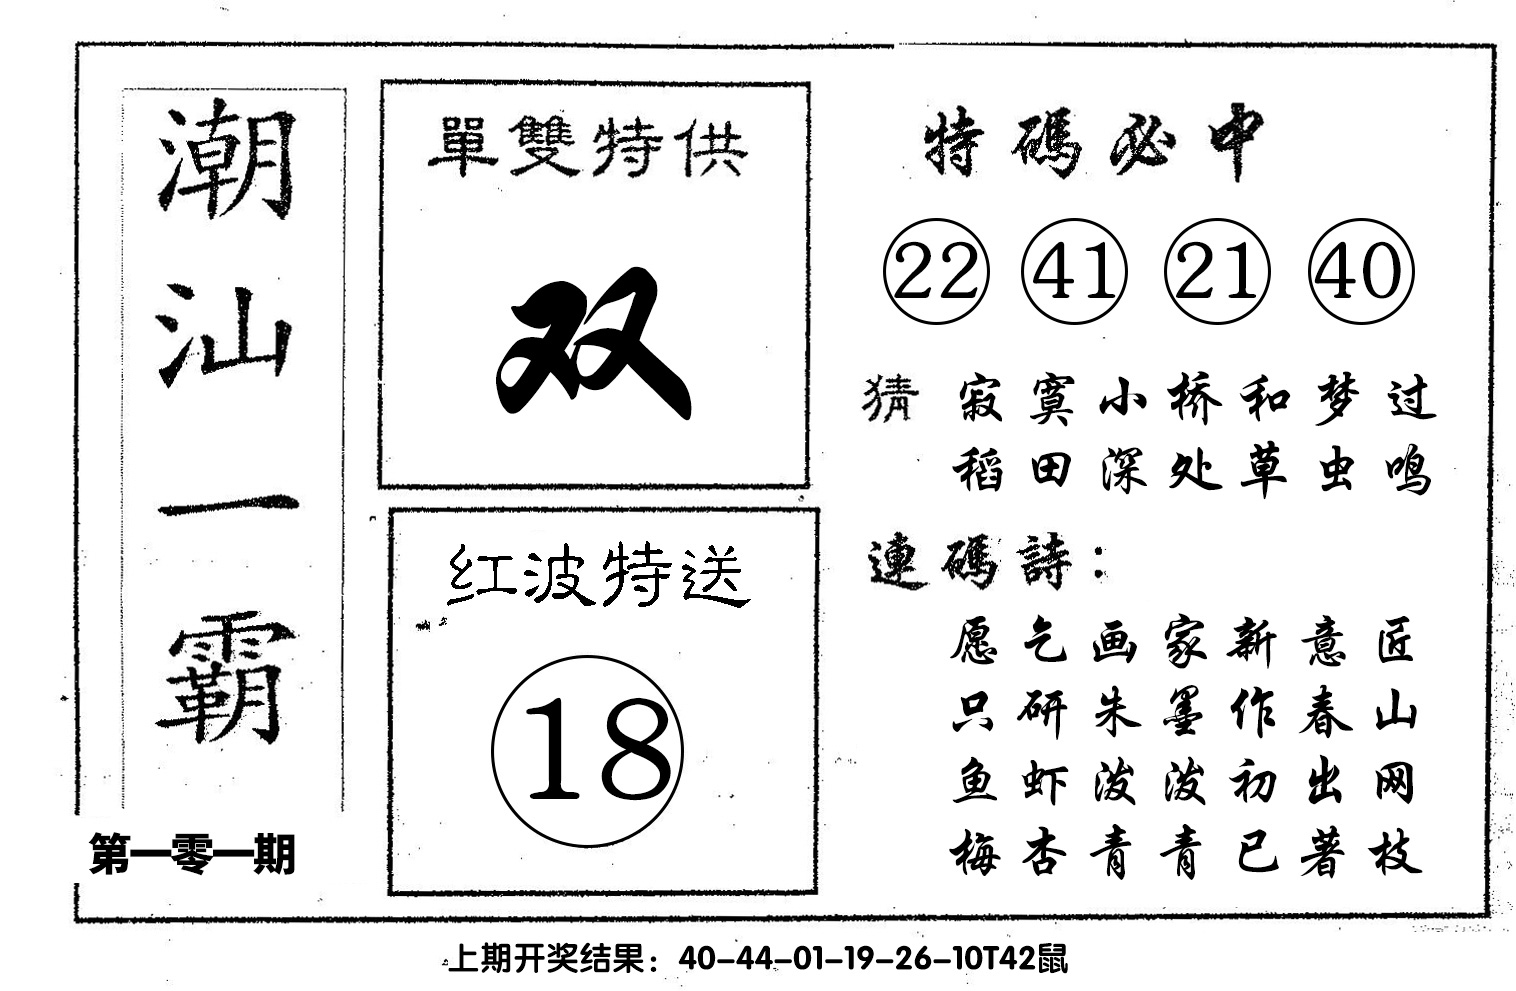 潮汕一霸
第一零一期
單雙特供
双
红波特送
18
特碼必中
22 41 21 40
猜 寂寞小桥和梦过
稻田深处草虫鸣
連碼詩：
愿乞画家新意匠
只研朱墨作春山
鱼虾泼泼初出网
梅杏青青已著枝
上期开奖结果：40-44-01-19-26-10T42鼠